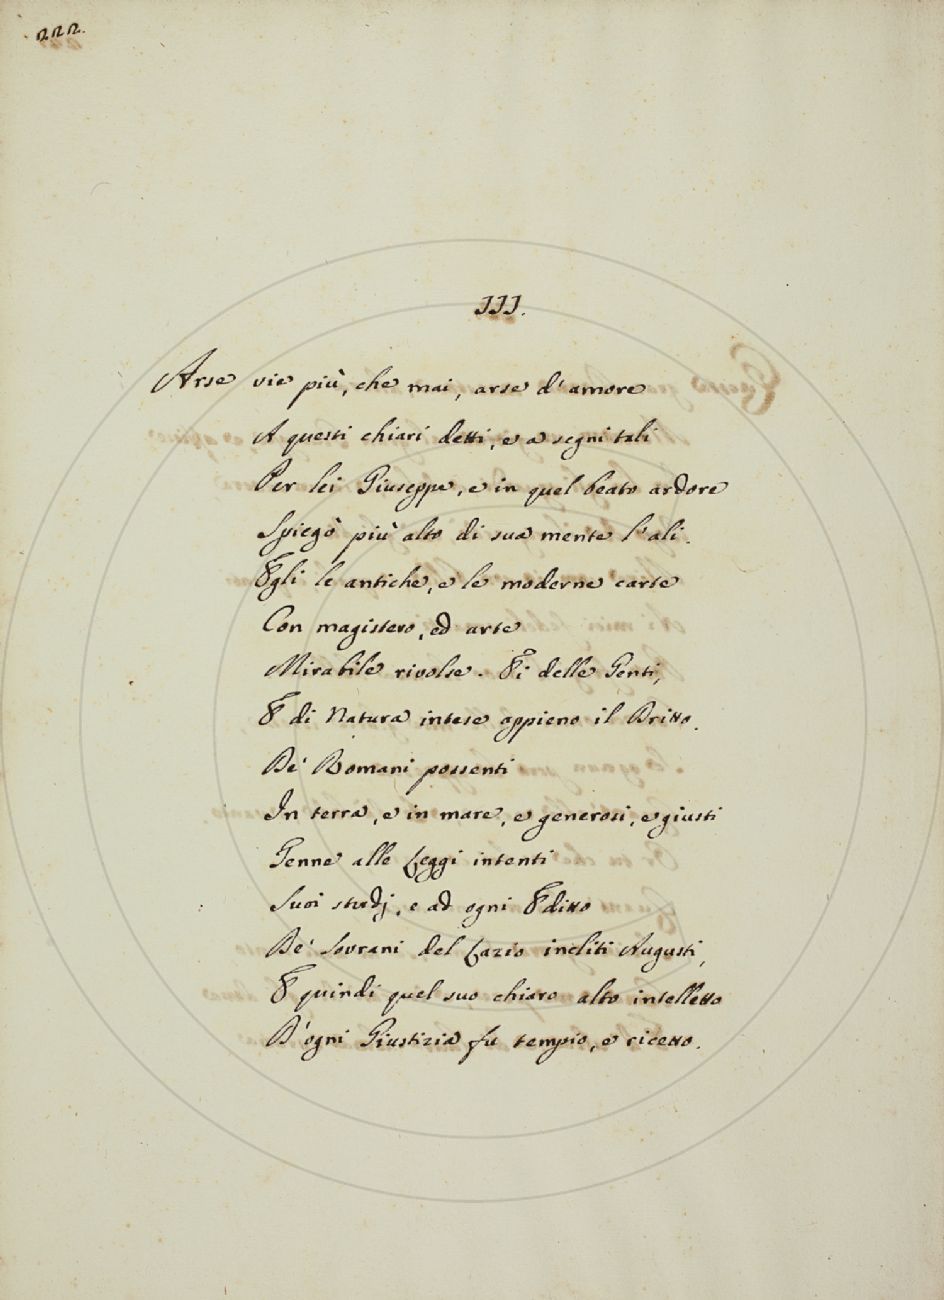 222.
III.
Arse vie più, che mai, arse d'amore
A questi chiari detti, e a segni tali
Per lei Giuseppe, e in quel beato ardore
Spiegò più alto di sua mente l'ali.
Egli le antiche, e le moderne carte
Con magistero, ed arte
Mirabile rivolse. Ei delle Genti,
E di Natura intese appieno il Dritto.
De' Romani possenti
In terra, e in mare, e generosi, e giusti
Tenne alle Leggi intenti
Suoi studj, e ad ogni Editto
De' Sovrani del Lazio incliti Augusti,
E quindi quel suo chiaro alto intelletto
D'ogni Giustizia fu tempio, e ricetto.